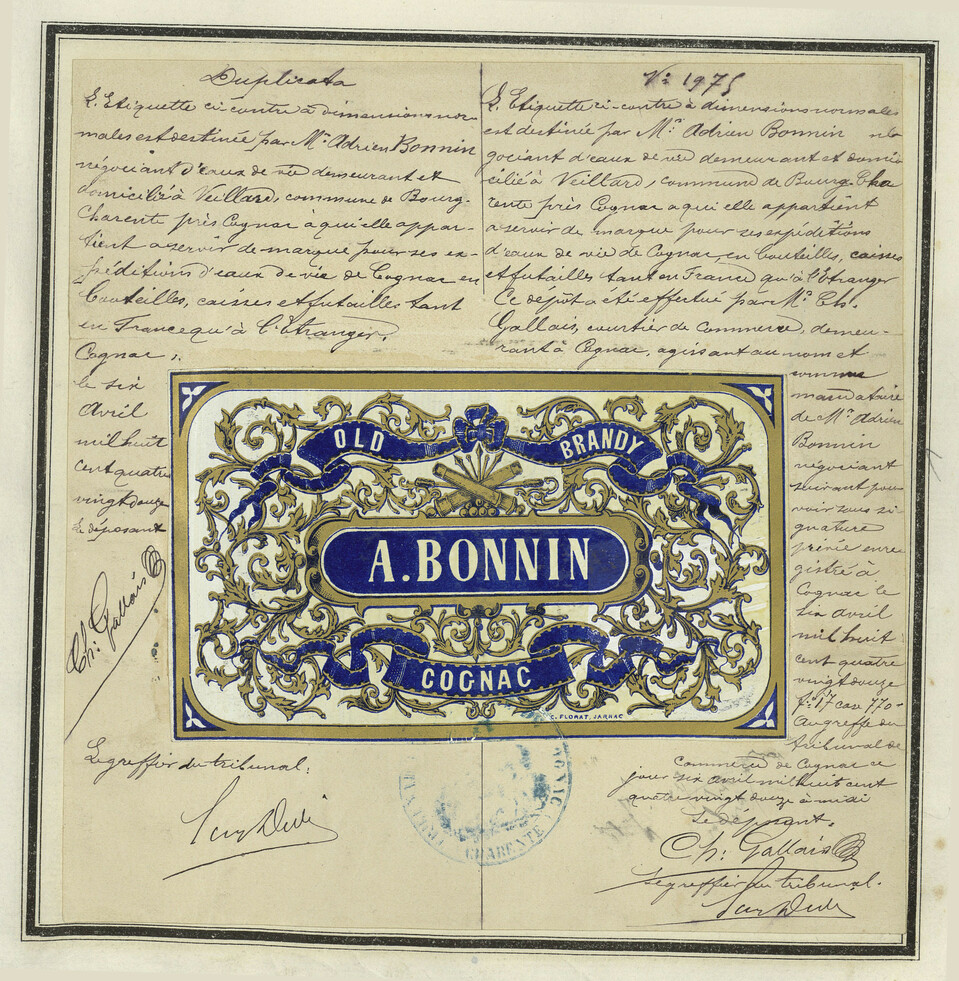 Duplicata
L'Etiquette ci-contre à dimensions nor-
males est destinée par Mr Adrien Bonnin
négociant d'eaux de vie demeurant et
domicilié à Veillard, commune de Bourg-
Charente près Cognac à qui elle appar-
tient a servir de marque pour ses ex-
péditions d'eaux de vie de Cognac en
bouteilles, caisses et futailles tant
en France qu'à l'Etranger.
Cognac,
le six
Avril
mil huit
cent quatre
vingt douze
Le déposant
Ch: Gallais
Le greffier du tribunal.
No 1975
L'Etiquette ci-contre à dimensions normales
est destinée par Mr Adrien Bonnin né-
gociant d'eaux de vie demeurant et domi-
cilié à Veillard, commune de Bourg-Cha
rente près Cognac a qui elle appartient
a servir de marque pour ses expéditions
d'eaux de vie de Cognac, en bouteilles, caisses
et futailles tant en France qu'à l'Etranger
Ce dépôt a été effectué par Mr Ch.
Gallais, courtier de commerce, demeu-
rant à Cognac, agissant au nom et
comme
mandataire
de Mr Adrien
Bonnin
négociant
suivant pou
voir sous si-
gnature
privée enre
gistré à
Cognac le
six avril
mil huit
cent quatre
vingt douze
fo 17 cas 770-
Au greffe du
tribunal de
Commerce de Cognac ce
jour six avril mil huit cent
quatre vingt douze à midi
Le déposant.
Ch: Gallais
Le greffier du tribunal.
OLD BRANDY
A. BONNIN
COGNAC
C. FLORAT, JARNAC
CHARENTE